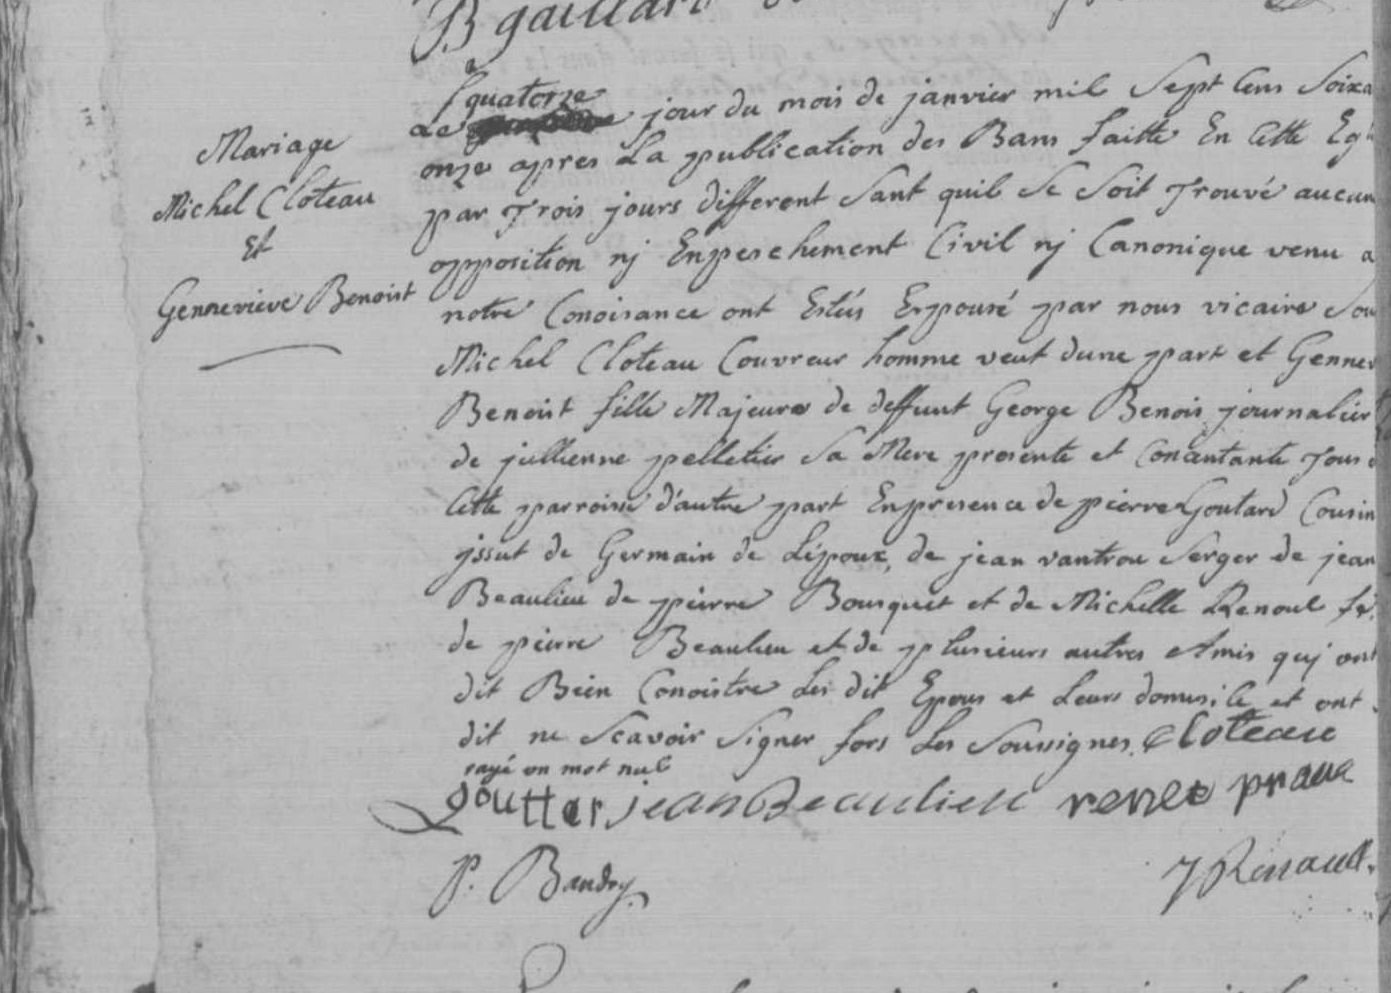 B gaillard
Mariage
Michel Cloteau
Et
Gennevieve Benoist
quatorze
Le jour du mois de janvier mil Sept Cens Soixa
onze apres La publication des Bans faitte En Cette Egl
par Trois jours different Sant quil Se Soit Trouvé aucun
opposition nj Enpeschement Civil nj Canonique venu a
notre Conoisance ont Estés Erpousé par nous vicaire Sou
Michel Cloteau Couvreur homme veut dune part et Gennev
Benoist fille Majeure de deffunt George Benois journalier
de jullienne pelletier Sa Mere presente et Concentante Tous d
Cette parroisse d'autre part Enpresence de pierre Goutard Cousin
jssut de Germain de Lépoux, de jean vantrou Serger de jean
Beaulieu de pierre Bousquet et de Michelle Renoul fe.
de pierre Beaulieu et de plusieurs autres Amis quj ont
dit Bien Conoistre Les dit Epous et Leurs domisile et ont
dit ne Scavoir Signer fors Les Soussignes Cloteau
rayé un mot nul
goutter jean Beaulieu renee praue
P. Baudry J Renault